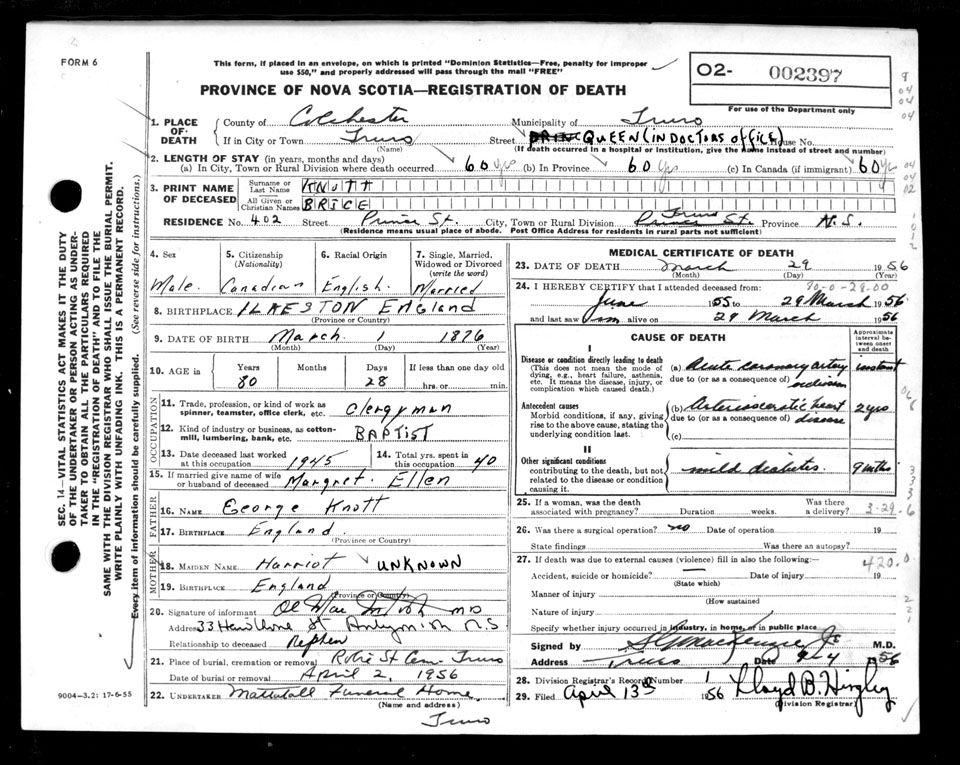 FORM 6
This form, if placed in an envelope, on which is printed "Dominion Statistics—Free, penalty for improper
use $50," and properly addressed will pass through the mail "FREE"
O2- 002397
For use of the Department only
PROVINCE OF NOVA SCOTIA—REGISTRATION OF DEATH
1. PLACE OF DEATH County of Colchester Municipality of Truro
If in City or Town Truro Street QUEEN (IN DOCTORS OFFICE) House No.
(Name) (If death occurred in a hospital or institution, give the name instead of street and number)
2. LENGTH OF STAY (in years, months and days)
(a) In City, Town or Rural Division where death occurred 60 yrs (b) In Province 60 yrs (c) In Canada (if immigrant) 60 yrs
3. PRINT NAME OF DECEASED Surname or Last Name KNOTT
All Given or Christian Names BRICE
RESIDENCE No. 402 Street Prince St. City, Town or Rural Division Truro Province N.S.
(Residence means usual place of abode. Post Office Address for residents in rural parts not sufficient)
4. Sex 5. Citizenship (Nationality) 6. Racial Origin 7. Single, Married, Widowed or Divorced (write the word)
Male. Canadian English. Married
8. BIRTHPLACE ILKESTON England
(Province or Country)
9. DATE OF BIRTH March 1 1876
(Month) (Day) (Year)
10. AGE in Years Months Days If less than one day old
80 28 hrs. or min.
OCCUPATION
11. Trade, profession, or kind of work as spinner, teamster, office clerk, etc. Clergyman
12. Kind of industry or business, as cotton-mill, lumbering, bank, etc. BAPTIST
13. Date deceased last worked at this occupation 1945 14. Total yrs. spent in this occupation 40
15. If married give name of wife or husband of deceased Margret. Ellen
FATHER
16. NAME George Knott
17. BIRTHPLACE England.
(Province or Country)
MOTHER
18. MAIDEN NAME Harriot UNKNOWN
19. BIRTHPLACE England
(Province or Country)
20. Signature of informant MD
Address 33 Hawthorne St Antigonish N.S
Relationship to deceased Nephew
21. Place of burial, cremation or removal Robie St Cem. Truro
Date of burial, cremation or removal April 2, 1956
22. UNDERTAKER Mattatall Funeral Home
(Name and address)
Truro
MEDICAL CERTIFICATE OF DEATH
23. DATE OF DEATH March 29 1956
(Month) (Day) (Year)
24. I HEREBY CERTIFY that I attended deceased from
June 1955 to 29 March 1956
and last saw him alive on 29 March 1956
CAUSE OF DEATH
Approximate interval between onset and death
I
Disease or condition directly leading to death
(This does not mean the mode of dying, e.g., heart failure, asthenia, etc. It means the disease, injury, or complication which caused death.)
(a) Acute coronary artery occlusion instant
due to (or as a consequence of)
Antecedent causes
Morbid conditions, if any, giving rise to the above cause, stating the underlying condition last.
(b) Arteriosclerotic heart disease 2 yrs
due to (or as a consequence of)
(c)
II
Other significant conditions
contributing to the death, but not related to the disease or condition causing it.
mild diabetes. 9 mths
25. If a woman, was the death associated with pregnancy? Duration weeks. Was there a delivery? 3-29-6
26. Was there a surgical operation? no Date of operation 19
State findings Was there an autopsy?
27. If death was due to external causes (violence) fill in also the following:— 420.0
Accident, suicide or homicide? Date of injury 19
(State which)
Manner of injury
(How sustained
Nature of injury
Specify whether injury occurred in industry, in home, or in public place
Signed by MacKenzie Jr M.D.
Address Truro Date 9-4 1956
28. Division Registrar's Record Number 1
29. Filed April 13th 1956 Lloyd B. Hingley
(Division Registrar)
SEC. 14—VITAL STATISTICS ACT MAKES IT THE DUTY
OF THE UNDERTAKER OR PERSON ACTING AS UNDER-
TAKER TO OBTAIN ALL THE PARTICULARS REQUIRED
IN THE "REGISTRATION OF DEATH" AND TO FILE THE
SAME WITH THE DIVISION REGISTRAR WHO SHALL ISSUE THE BURIAL PERMIT.
WRITE PLAINLY WITH UNFADING INK. THIS IS A PERMANENT RECORD.
Every item of information should be carefully supplied. (See reverse side for instructions.)
9004-3.2: 17-6-55